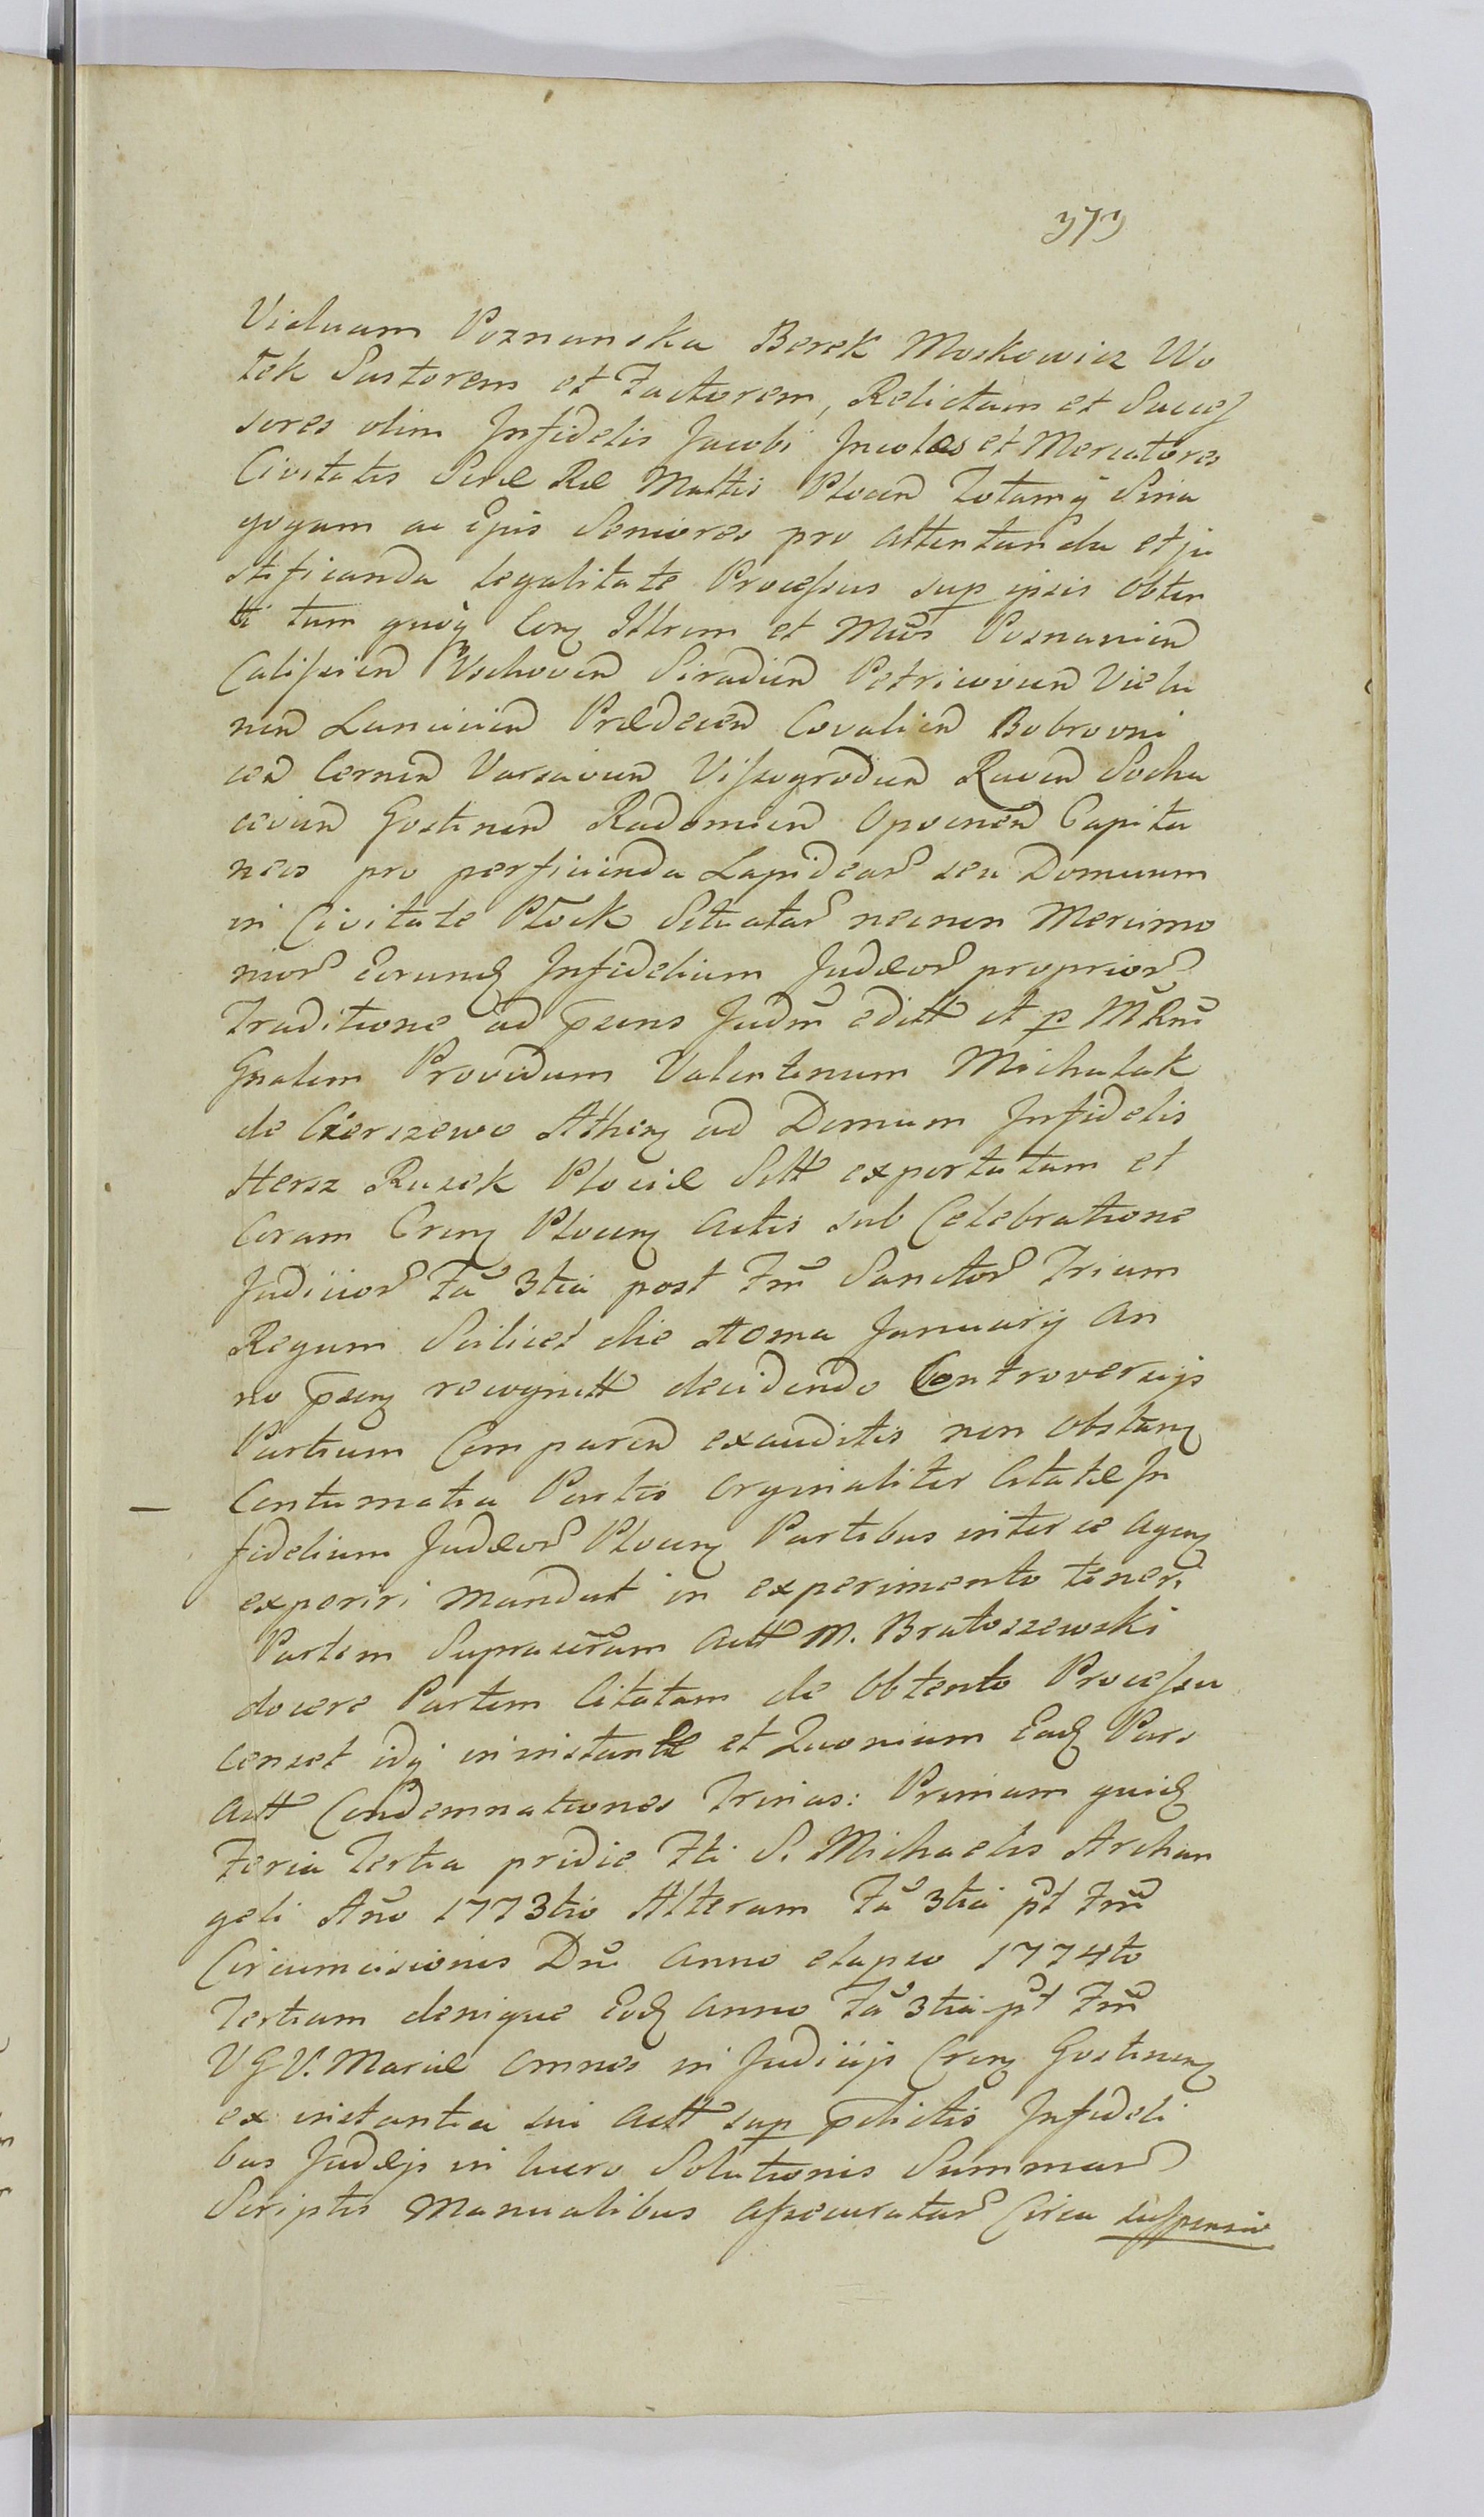 373
Viduam Poznanska Berek Moskowicz Wo
tek Sartorem et Factorem, Relictam et Succes
sores olim Infidelis Jacobi Incolas et Mercatores
Civitatis Sacræ Ræ Mattis Plocen Totamq Sina
gogam ac Ejus Seniores pro attentanda et ju
stificanda legalitate Processus sup ipsis obten
ti tum quoq Conz Illrem et Mcos Posnanien
Calissien Vschoven Siradien Petricovien Vielu
nen Lanicicien Prædecen Covalien Bobrovni
cen Cernen Varsavien Vissogrodien Raven Socha
cevien Gostinen Radomien Opocinen Capita
neos pro perficienda Lapidear seu Domuum
in Civitate Płock Situatar necnon Mercimo
nior Eorund Infidelium Judæor proprior
Traditione ad psens Judm editt et p MRm
Gnalem Providum Valentinum Michalak
de Czerszewo Athenz ad Domum Infidelis
Hersz Rusek Plociæ Sitt exportatam et
Coram Crenz Plocenz Actis sub Celebratione
Judicior Fa 3tia post Fm Sanctor Trium
Regum Scilicet die Homa Januarij An
no psenz recognitt decidendo Controversijs
Partium Comparen exauditis non obstanz
Contumatia Partis Orginaliter Citatæ In
fidelium Judæor Plocenz Partibus inter se agenz
experiri mandat in experimento teneri
Partem Suprascram Actt M. Bratoszewski
docere Partem Citatam de obtento Processu
censet idq in instantæ et Quoniam Ead Pars
Actt Condemnationes Trinas: Primam quid
Feria Tertia pridie Fti S. Michaelis Archan
geli Ano 1773tio Alteram Fa 3tia pt Fm
Circumcisionis Dni Anno elapso 1774to
Tertiam denique Eod Anno Fa 3tia pt Fm
V G V. Mariæ omnes in Judicijs Crenz Gostinenz
ex instantia sui Actt sup pdictis Infideli
bus Judæis in lucro Solutionis Summar
Scriptis Manualibus assecuratar Circa suspensio